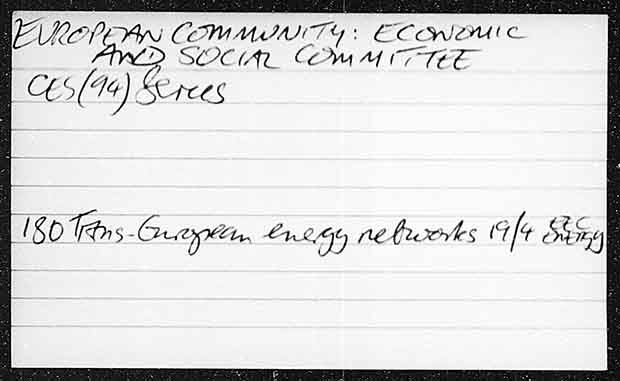 EUROPEAN COMMUNITY: ECONOMIC
AND SOCIAL COMMITTEE
CES(94) Series
180 Trans-European energy networks 19/4 EEC ENERGY